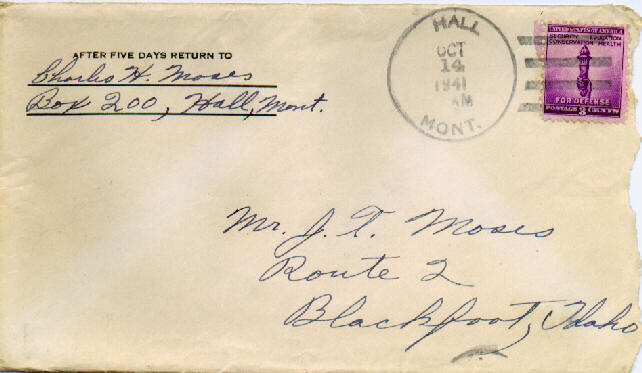 AFTER FIVE DAYS RETURN TO
Charles H. Moses
Box 200, Hall, Mont.
HALL
OCT
14
1941
AM
MONT.
UNITED STATES OF AMERICA
SECURITY EDUCATION
CONSERVATION HEALTH
FOR DEFENSE
POSTAGE 3 CENTS
Mr. J. T. Moses
Route 2
Blackfoot, Idaho